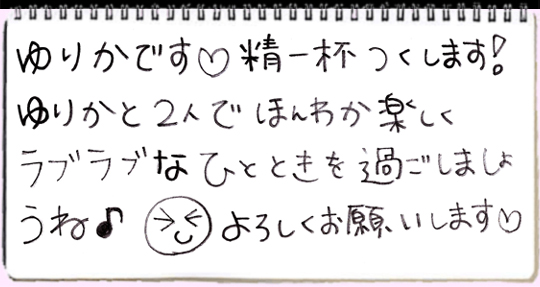 ゆりかです♡精一杯つくします!
ゆりかと2人でほんわか楽しく
ラブラブなひとときを過ごしましょ
うね♪よろしくお願いします♡